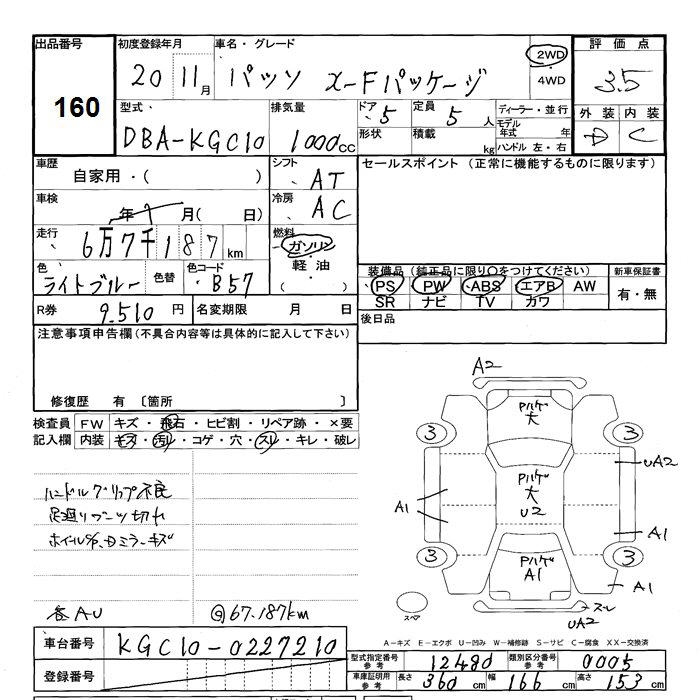 出品番号 初度登録年月 車名・グレード 評価点
160 20 11月 パッソ X-Fパッケージ 2WD ・ 4WD 3.5
外装 内装
D C
型式 排気量 ドア 定員 ディーラー・並行
DBA-KGC10 1000cc 5 5人 モデル年式 年
形状 積載 kg ハンドル 左・右
車歴 シフト セールスポイント (正常に機能するものに限ります)
自家用・( ) AT
車検 冷房
年 月( 日) AC
走行 燃料
6万7千187km ガソリン ・ 軽油 ・ ( )
色 色替 色コード
ライトブルー B57
装備品 (純正品に限り○をつけてください) 新車保証書
PS PW ABS エアB AW 有・無
SR ナビ TV カワ
R券 9,510円 名変期限 月 日 後日品
注意事項申告欄 (不具合内容等は具体的に記入して下さい)
修復歴 有 〔箇所 〕
検査員 FW キズ ・ 飛石 ・ ヒビ割 ・ リペア跡 ・ ×要
記入欄 内装 キズ ・ 汚レ ・ コゲ ・ 穴 ・ スレ ・ キレ ・ 破レ
ハンドルグリップ不良
足廻りブーツ切れ
ホイルS/C、ミラーキズ
各AU @67.187km
A2
Pハゲ
大
3 3
UA2
Pハゲ
大
U2
A1
A1
3 3
Pハゲ
A1
A1
スレ
UA2
スペア
A-キズ E-エクボ U-凹み W-補修跡 S-サビ C-腐食 XX-交換済
車台番号 KGC10-0227210
登録番号
型式指定番号参考 12480 類別区分番号参考 0005
車庫証明用参考 長さ 360cm 幅 166cm 高さ 153cm